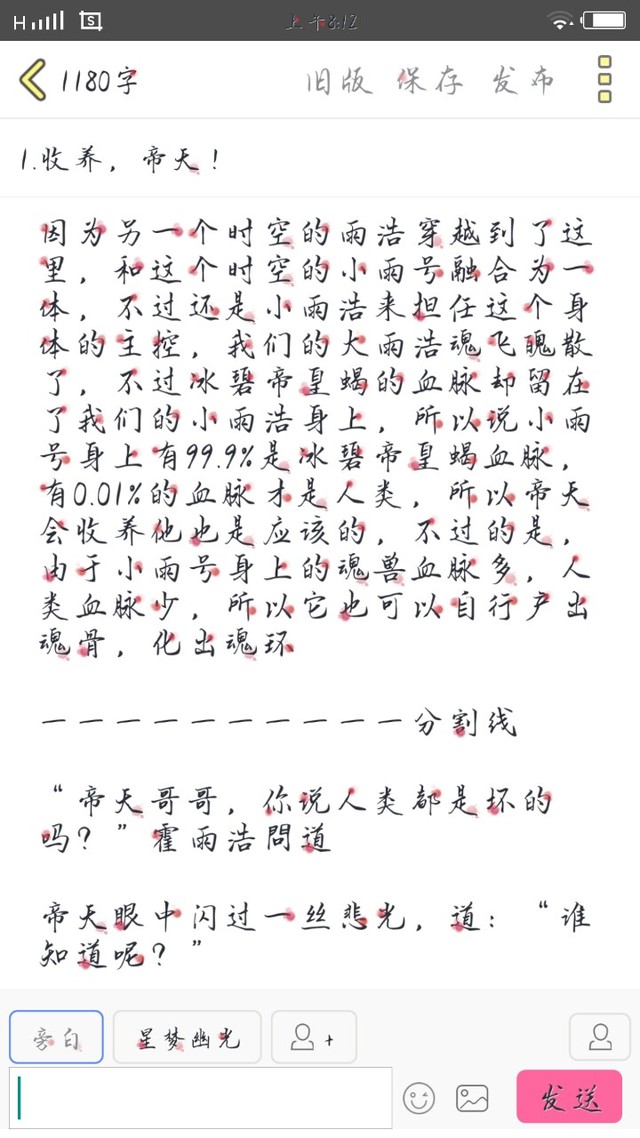 H 上午8:12
1180字 旧版 保存 发布
1.收养，帝天！
因为另一个时空的雨浩穿越到了这
里，和这个时空的小雨号融合为一
体，不过还是小雨浩来担任这个身
体的主控，我们的大雨浩魂飞魄散
了，不过冰碧帝皇蝎的血脉却留在
了我们的小雨浩身上，所以说小雨
号身上有99.9%是冰碧帝皇蝎血脉，
有0.01%的血脉才是人类，所以帝天
会收养他也是应该的，不过的是，
由于小雨号身上的魂兽血脉多，人
类血脉少，所以它也可以自行产出
魂骨，化出魂环
一一一一一一一一一一分割线
“帝天哥哥，你说人类都是坏的
吗？”霍雨浩問道
帝天眼中闪过一丝悲光，道：“谁
知道呢？”
旁白 星梦幽光 +
发送